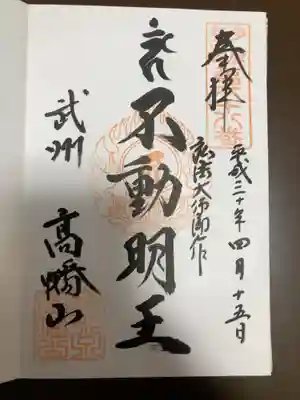 奉拝
平成三十年四月十五日
弘法大師御作
不動明王
武州
高幡山